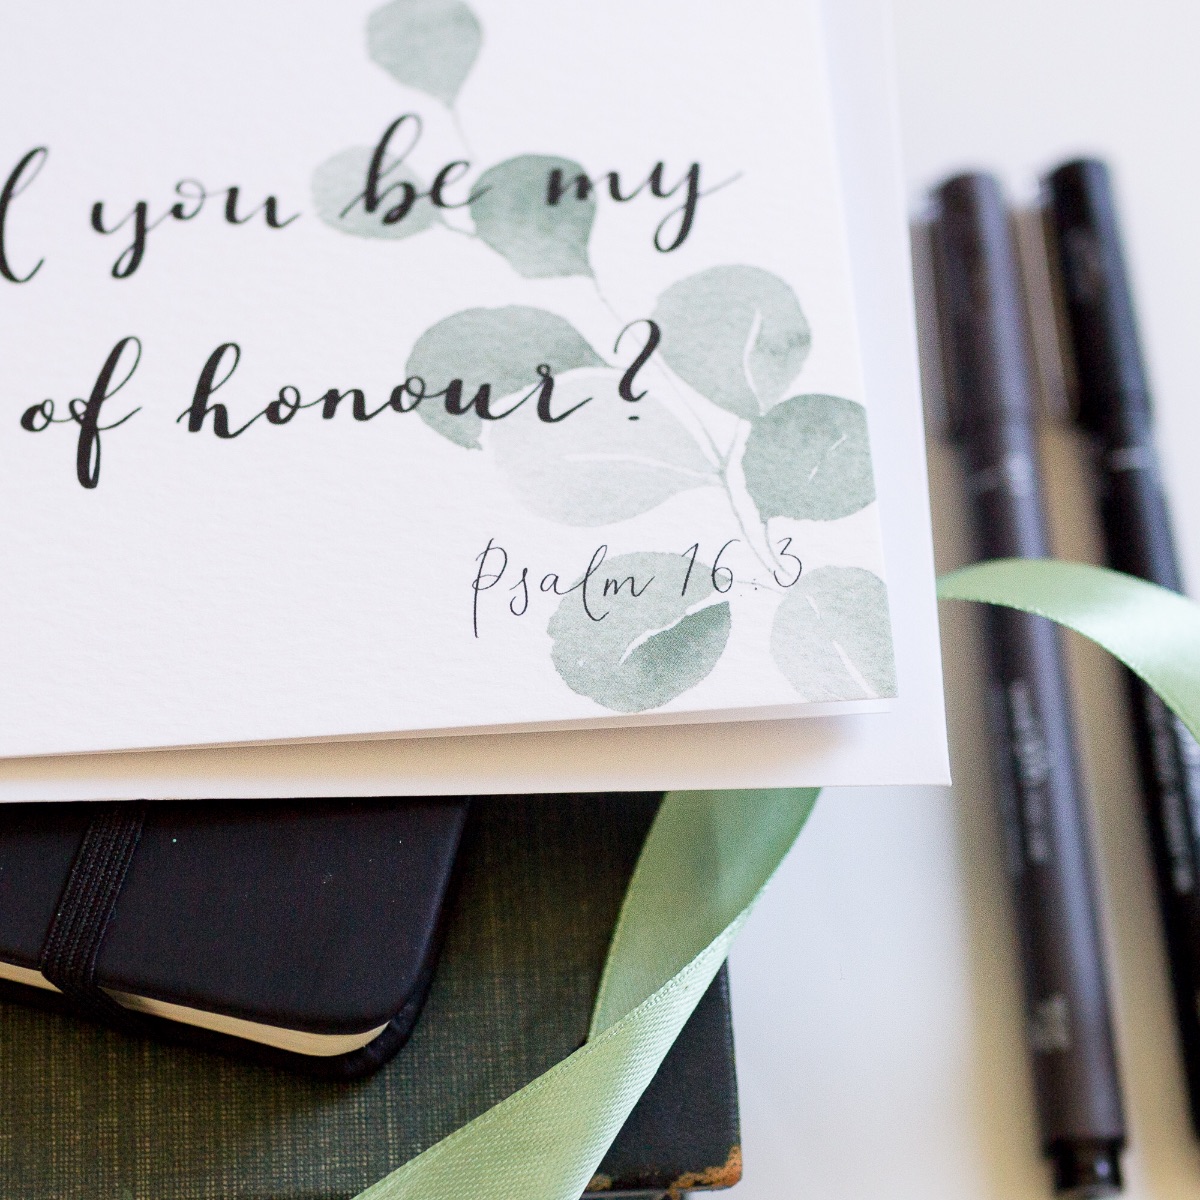 you be my
of honour?
Psalm 16:3